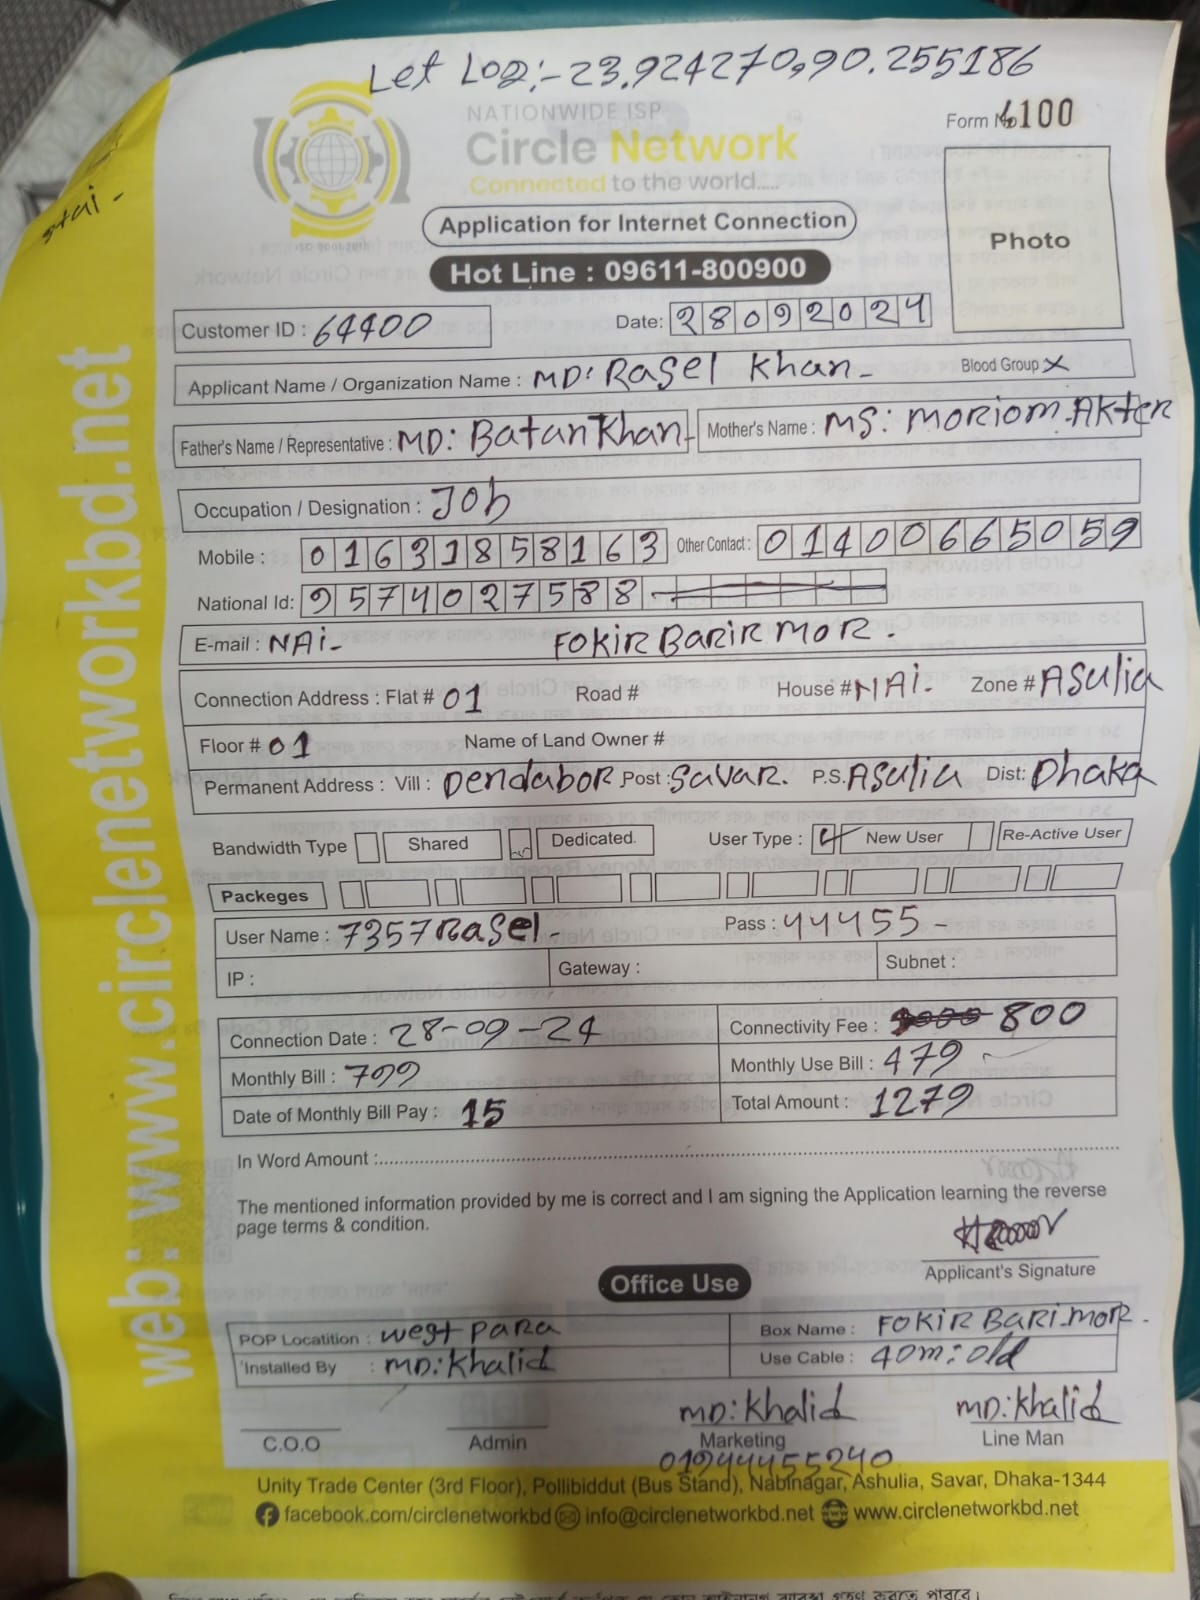 Let Log:-23.924270,90.255186
NATIONWIDE ISP
Circle Network
Connected to the world.....
Form No 4100
Application for Internet Connection
Hot Line : 09611-800900
Photo
Customer ID : 64400
Date: 28092024
Applicant Name / Organization Name : MD: Rasel Khan - Blood Group X
Father's Name / Representative : MD: Batan Khan - Mother's Name : MS: MORIOM. AKter
Occupation / Designation : Job
Mobile : 01631858163 Other Contact : 01400665059
National Id: 9574027588
E-mail : NAi- FOKIR BARIR MOR.
Connection Address : Flat # 01 Road # House # NAi- Zone # ASulia
Floor # 01 Name of Land Owner #
Permanent Address : Vill : Dendabor Post : SavaR. P.S. ASulia Dist: Dhaka
Bandwidth Type Shared Dedicated. User Type : New User Re-Active User
Packeges
User Name : 7357Rasel- Pass : 44455-
IP : Gateway : Subnet :
Connection Date : 28-09-24 Connectivity Fee : 800
Monthly Bill : 799 Monthly Use Bill : 479
Date of Monthly Bill Pay : 15 Total Amount : 1279
In Word Amount :
The mentioned information provided by me is correct and I am signing the Application learning the reverse
page terms & condition.
Applicant's Signature
Office Use
POP Locatition : west para Box Name : FOKIR BARI-MOR-
Installed By : MD:Khalid Use Cable : 40m:old
MD:Khalid MD:Khalid
C.O.O Admin Marketing Line Man
01944455240
Unity Trade Center (3rd Floor), Pollibiddut (Bus Stand), Nabinagar, Ashulia, Savar, Dhaka-1344
facebook.com/circlenetworkbd info@circlenetworkbd.net www.circlenetworkbd.net
web: www.circlenetworkbd.net